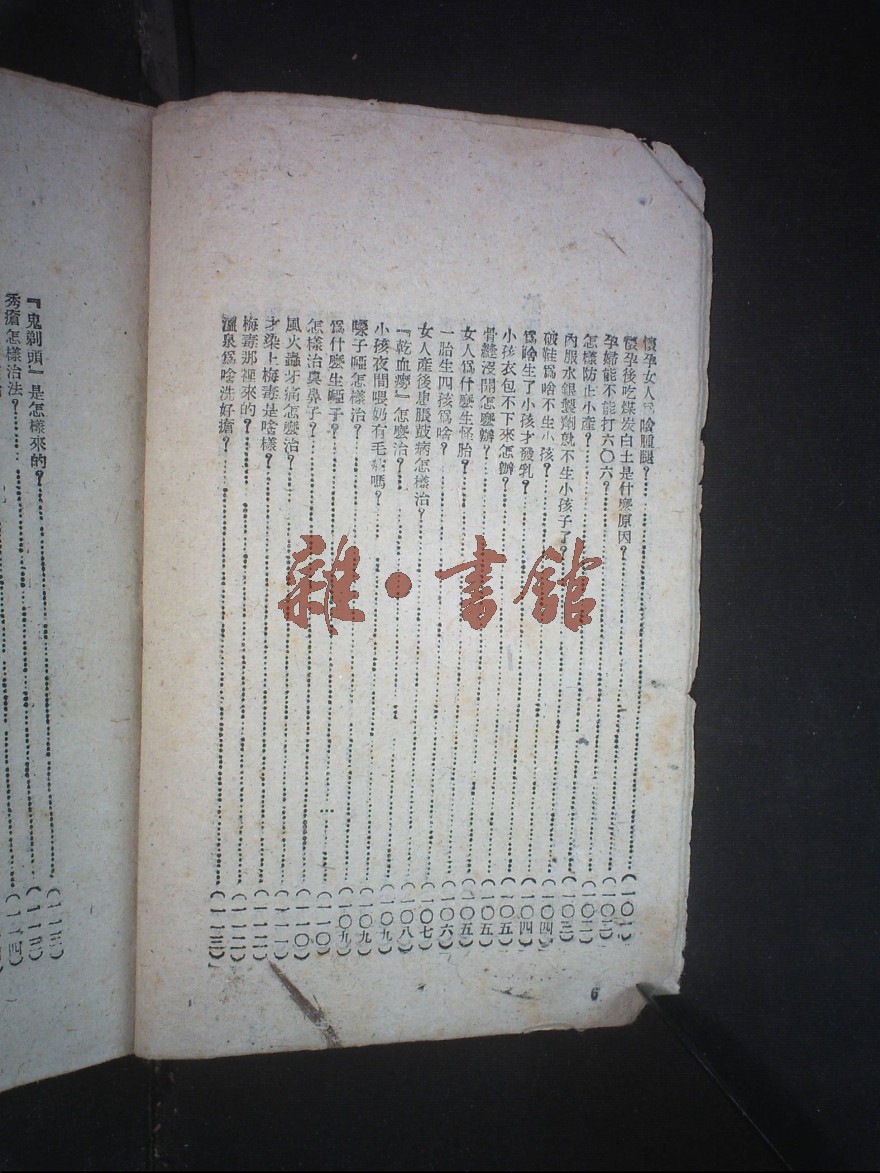 懷孕女人爲啥腫腿？……（一〇一）
懷孕後吃煤炭白土是什麽原因？……（一〇二）
孕婦能不能打六〇六？……（一〇二）
怎樣防止小產？……（一〇二）
內服水銀製劑就不生小孩子了？……（一〇三）
破鞋爲啥不生小孩？……（一〇四）
爲啥生了小孩才發乳？……（一〇四）
小孩衣包不下來怎辦？……（一〇五）
骨縫沒開怎麽辦？……（一〇五）
女人爲什麽生怪胎？……（一〇五）
一胎生四孩爲啥？……（一〇六）
女人產後患脹鼓病怎樣治？……（一〇七）
『乾血癆』怎麽治？……（一〇八）
小孩夜間喂奶有毛病嗎？……（一〇九）
嗓子啞怎樣治？……（一〇九）
爲什麽生啞子？……（一〇九）
怎樣治臭鼻子？……（一一〇）
風火蟲牙病怎麽治？……（一一〇）
才染上梅毒是啥樣？……（一一一）
梅毒那裡來的？……（一一二）
溫泉爲啥洗好瘡？……（一一三）
6
『鬼剃頭』是怎樣來的？……（一一三）
禿瘡怎樣治法？……
雜·書館